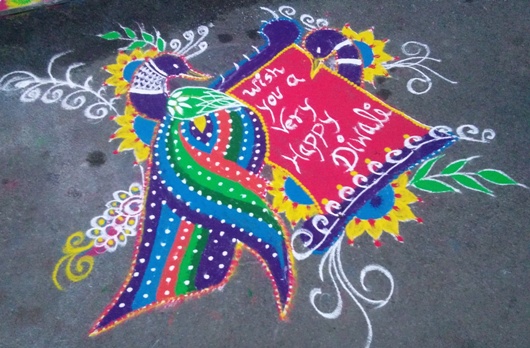 Wish
you a
Very
Happy
Diwali